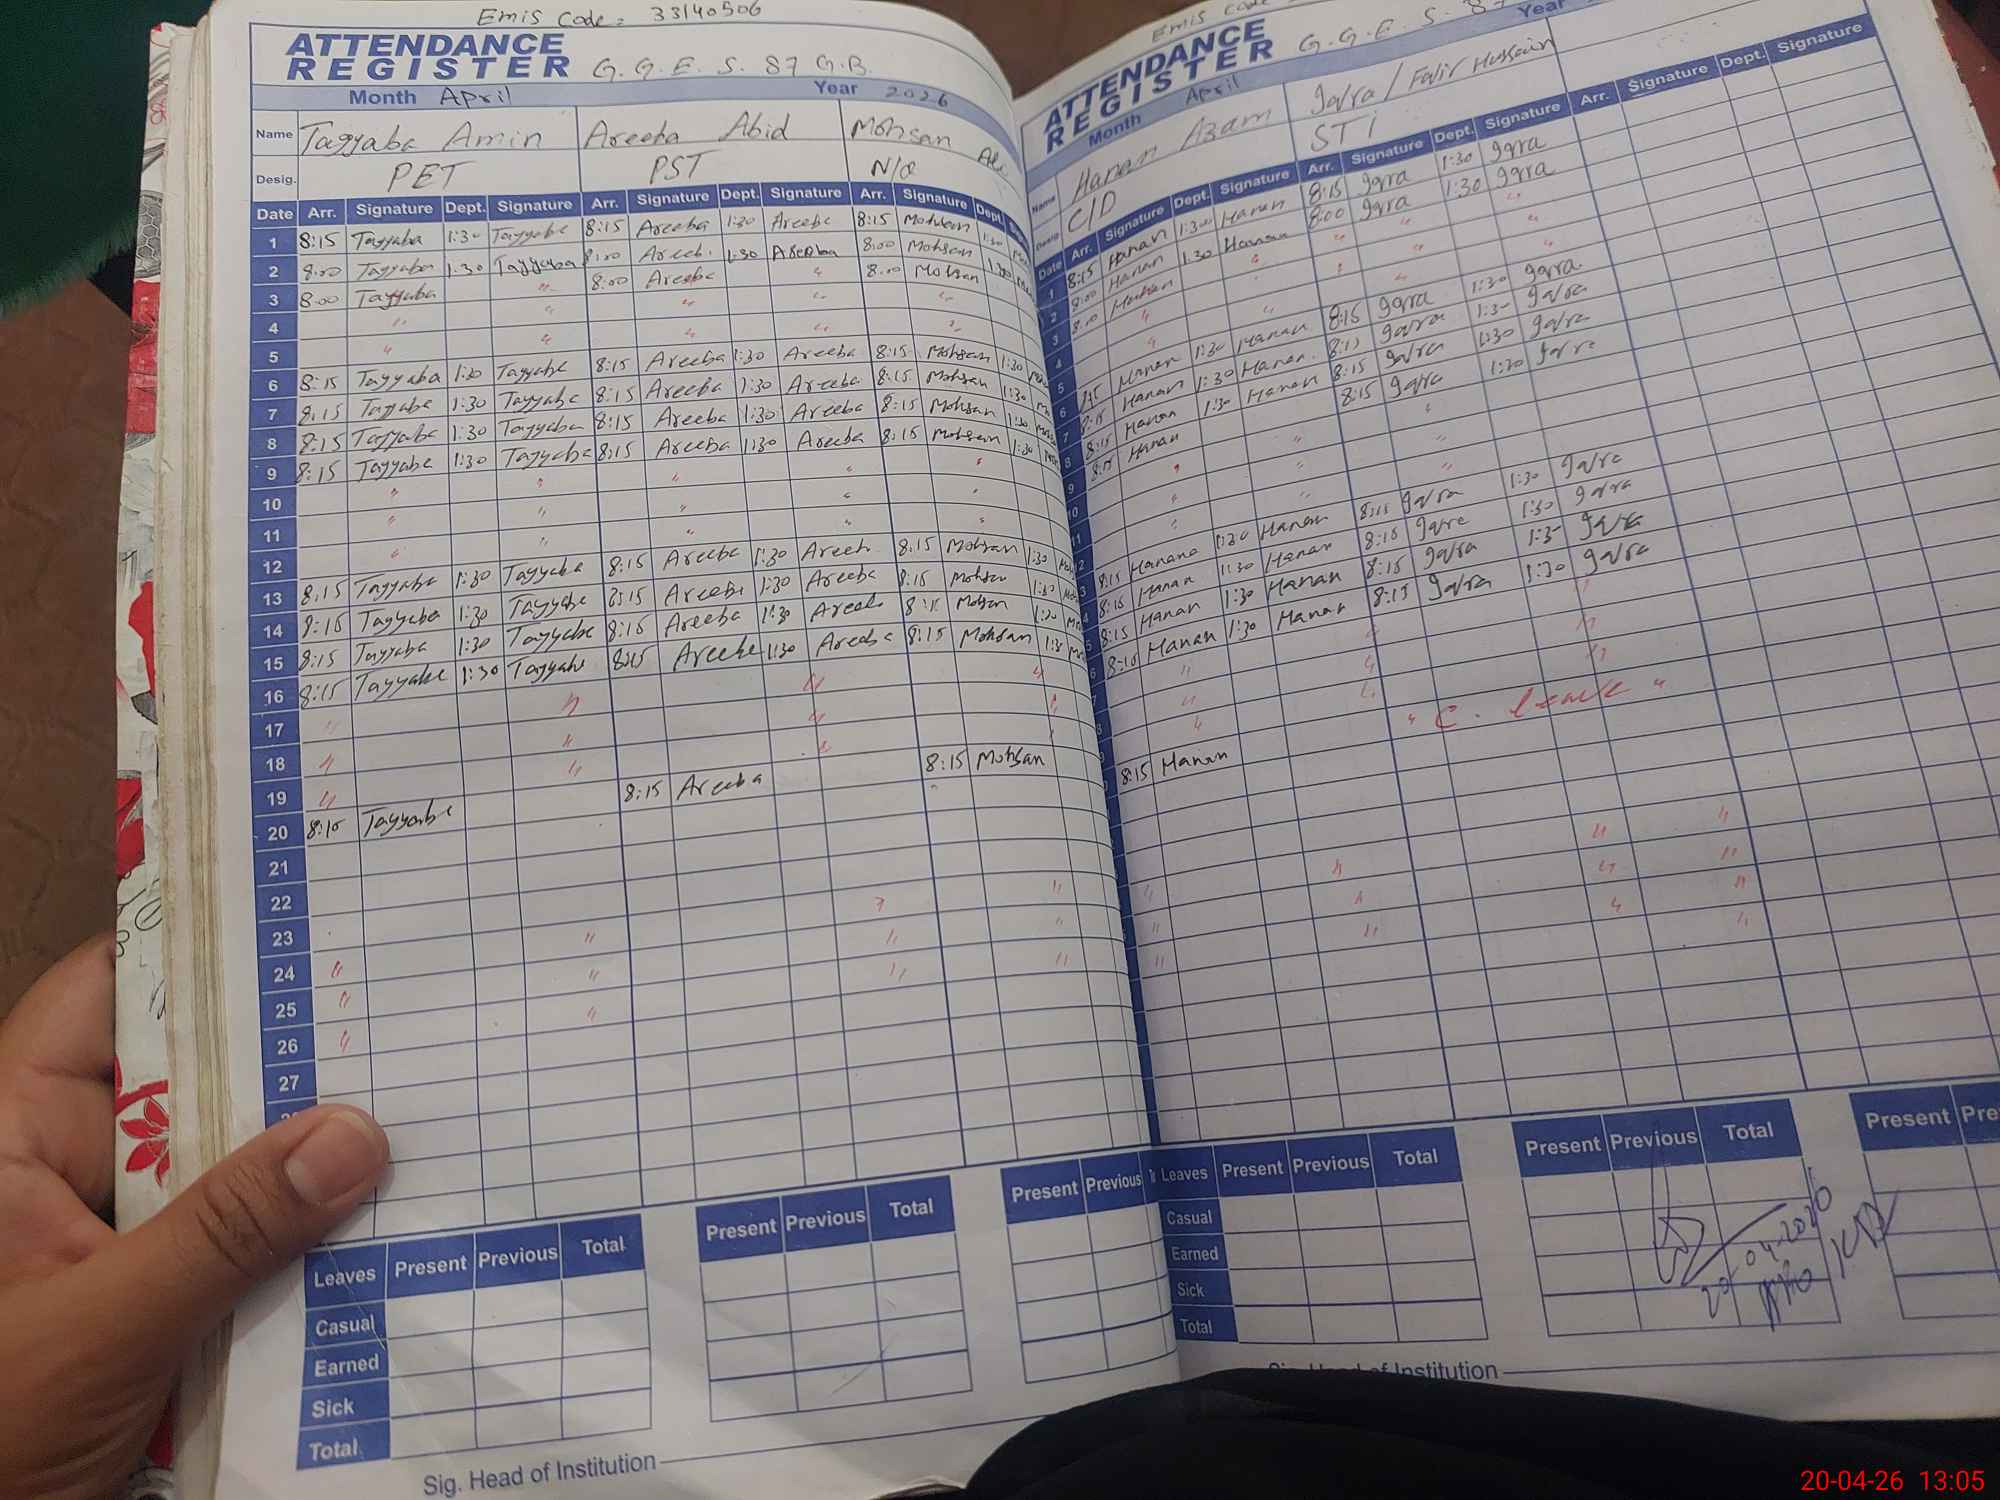 Emis Code: 33140506
ATTENDANCE
REGISTER G. G. E. S. 87 G.B.
Month April Year 2026
Name Tayyaba Amin Areeba Abid Mohsan Ali
Desig. PET PST N/Q
Date Arr. Signature Dept. Signature Arr. Signature Dept. Signature Arr. Signature Dept.
1 8:15 Tayyaba 1:30 Tayyabe 8:15 Areeba 1:30 Areeba 8:15 Mohsan 1:30
2 8:00 Tayyaba 1:30 Tayyaba 8:00 Areeb. 1:30 Areebaa 8:00 Mohsan 1:30
3 8:00 Tayyaba " 8:00 Areeba " 8:00 Mohsan
4 " " " " "
5 " " " " "
6 8:15 Tayyaba 1:30 Tayyabe 8:15 Areeba 1:30 Areeba 8:15 Mohsan 1:30
7 8:15 Tayyabe 1:30 Tayyabe 8:15 Areeba 1:30 Areeba 8:15 Mohsan 1:30
8 8:15 Tayyabe 1:30 Tayyaba 8:15 Areeba 1:30 Areeba 8:15 Mohsan 1:30
9 8:15 Tayyabe 1:30 Tayyabe 8:15 Areeba 1:30 Areeba 8:15 Mohsan 1:30
10 " " " " "
11 " " " " "
12 " " " " "
13 8:15 Tayyabe 1:30 Tayyabe 8:15 Areeba 1:30 Areeb. 8:15 Mohsan 1:30
14 8:15 Tayyaba 1:30 Tayyabe 8:15 Areeba 1:30 Areeba 8:15 Mohsan 1:30
15 8:15 Tayyaba 1:30 Tayyabe 8:15 Areeba 1:30 Areeb 8:15 Mohsan 1:30
16 8:15 Tayyabe 1:30 Tayyabe 8:15 Areeba 1:30 Areeba 8:15 Mohsan 1:30
17 " " " "
18 " " " "
19 " " "
20 8:15 Tayyabe 8:15 Areeba 8:15 Mohsan
21
22
23
24 " " " "
25 " " " "
26 " " " "
27
Leaves Present Previous Total Present Previous Total Present Previous
Casual
Earned
Sick
Total
Sig. Head of Institution
Emis Code
ATTENDANCE
REGISTER G. G. E. S. 87
Month April Year
Name Hanan Azam Iqra / Fakir Hussain
Desig C/D STI
Date Arr. Signature Dept. Signature Arr. Signature Dept. Signature Arr. Signature Dept. Signature
1 8:15 Hanan 1:30 Hanan 8:15 Iqra 1:30 Iqra
2 8:00 Hanan 1:30 Hanan 8:00 Iqra 1:30 Iqra
3 8:00 " "
4 " " " "
5 " "
6 8:15 Hanan 1:30 Hanan 8:15 Iqra 1:30 Iqra
7 8:15 Hanan 1:30 Hanan 8:15 Iqra 1:30 Iqra
8 8:15 Hanan 1:30 Hanan 8:15 Iqra 1:30 Iqra
9 8:15 Hanan 8:15 Iqra 1:30 Iqra
10 " " "
11 " " "
12 " " "
8:15 Hanana 1:30 Hanan 8:15 Iqra 1:30 Iqra
8:15 Hanan 1:30 Hanan 8:15 Iqra 1:30 Iqra
8:15 Hanan 1:30 Hanan 8:15 Iqra 1:30 Iqra
8:15 Hanan 1:30 Hanan 8:15 Iqra 1:30 Iqra
" " "
" " "
" " "
8:15 Hanan " C. leave "
" " " "
" " " "
" " " "
Leaves Present Previous Total Present Previous Total Present Pre
Casual
Earned
Sick
Total
20-04-2026
Sig. Head of Institution
20-04-26 13:05